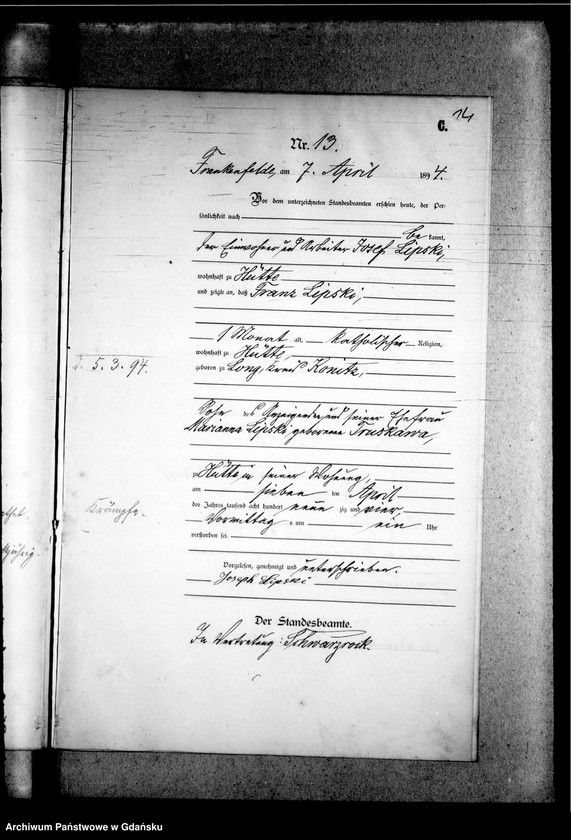 14
C.
Nr. 13.
Frankenfelde, am 7. April 1894.
Vor dem unterzeichneten Standesbeamten erschien heute, der Per-
sönlichkeit nach
be kannt,
der Einwohner und Arbeiter Josef Lipski,
wohnhaft zu Hütte
und zeigte an, daß Franz Lipski,
1 Monat alt, katholischer Religion,
wohnhaft zu Hütte,
geboren zu Long, Kreis Konitz,
5.3.94.
Sohn des Anzeigenden und seiner Ehefrau
Marianna Lipski geborene Truskawa,
zu Hütte in seiner Wohnung,
am sieben ten April
des Jahres tausend acht hundert neun zig und vier
Vormittag s um ein Uhr
verstorben sei.
Krämpfe.
Vorgelesen, genehmigt und unterschrieben.
Joseph Lipski
Der Standesbeamte.
In Vertretung: Schwarzrock.
Archiwum Państwowe w Gdańsku